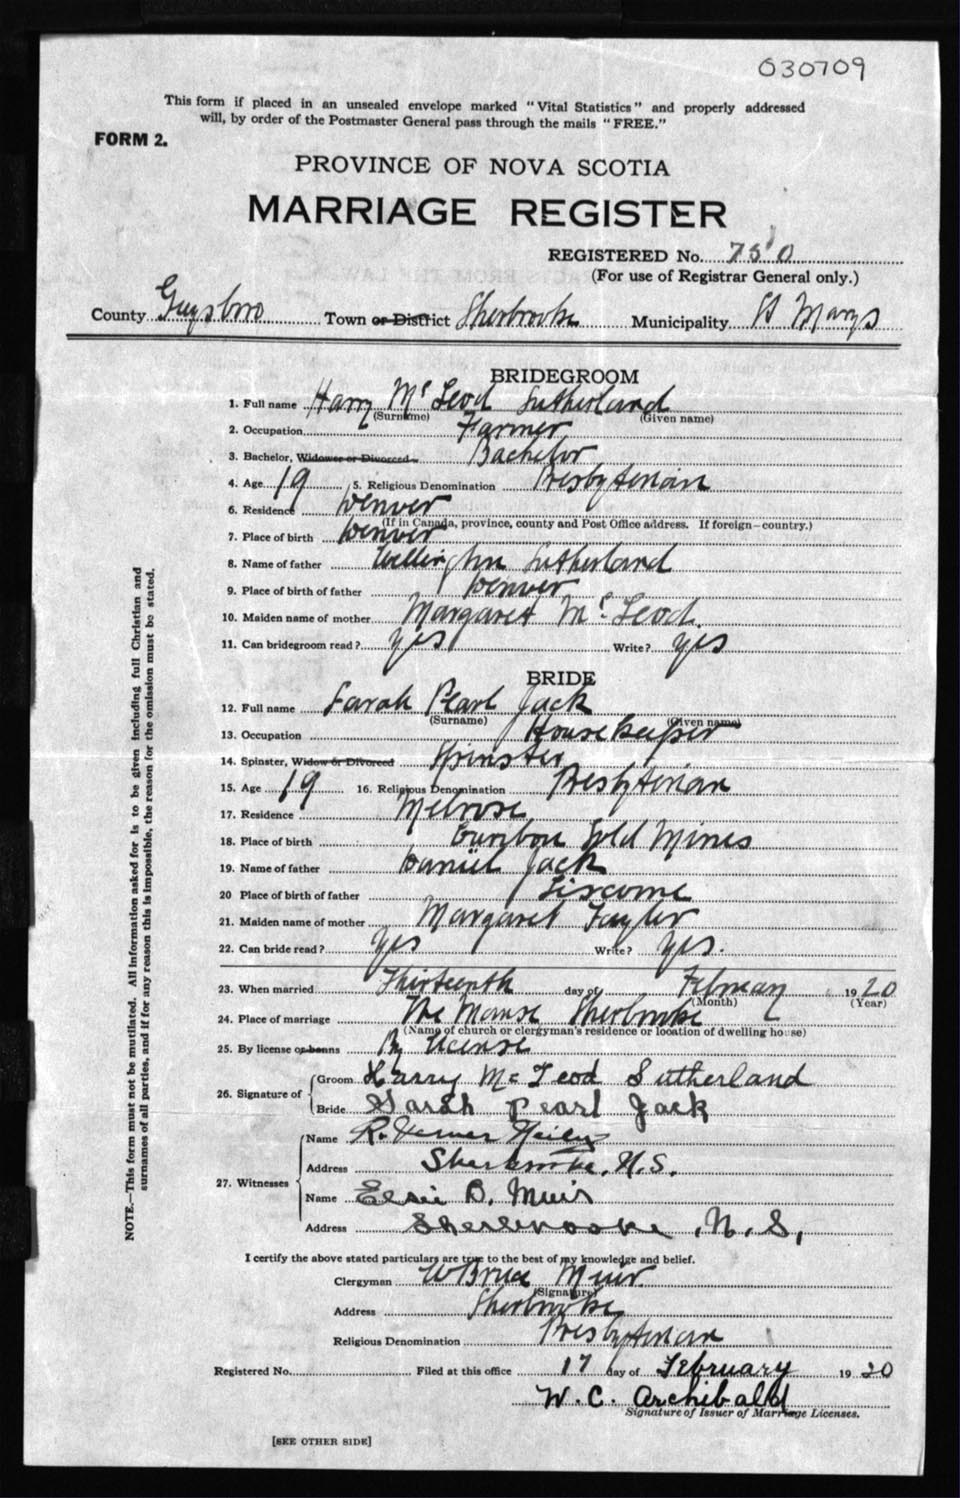 030709
This form if placed in an unsealed envelope marked "Vital Statistics" and properly addressed
will, by order of the Postmaster General pass through the mails "FREE."
FORM 2.
PROVINCE OF NOVA SCOTIA
MARRIAGE REGISTER
REGISTERED No. 750
(For use of Registrar General only.)
County Guysboro Town or District Sherbrooke Municipality St Marys
BRIDEGROOM
1. Full name Harry McLeod Sutherland
(Surname) (Given name)
2. Occupation Farmer
3. Bachelor, Widower or Divorced Bachelor
4. Age 19 5. Religious Denomination Presbyterian
6. Residence Denver
(If in Canada, province, county and Post Office address. If foreign—country.)
7. Place of birth Denver
8. Name of father Wellington Sutherland
9. Place of birth of father Denver
10. Maiden name of mother Margaret McLeod.
11. Can bridegroom read? yes Write? yes
BRIDE
12. Full name Sarah Pearl Jack
(Surname) (Given name)
13. Occupation Housekeeper
14. Spinster, Widow or Divorced Spinster
15. Age 19 16. Religious Denomination Presbyterian
17. Residence Melrose
18. Place of birth Caribou Gold Mines
19. Name of father Daniel Jack
20 Place of birth of father Liscome
21. Maiden name of mother Margaret Taylor
22. Can bride read? yes Write? yes.
23. When married Thirteenth day of February 1920
(Month) (Year)
24. Place of marriage The Manse Sherbrooke
(Name of church or clergyman's residence or location of dwelling house)
25. By license or banns By License
26. Signature of Groom Harry McLeod Sutherland
Bride Sarah Pearl Jack
27. Witnesses Name R. Verner
Address Sherbrooke, N.S.
Name Elsie B. Muir
Address Sherbrooke, N.S,
I certify the above stated particulars are true to the best of my knowledge and belief.
Clergyman W Bruce Muir
(Signature)
Address Sherbrooke
Religious Denomination Presbyterian
Registered No. Filed at this office 17 day of February 1920
W. C. Archibald
Signature of Issuer of Marriage Licenses.
[SEE OTHER SIDE]
NOTE.—This form must not be mutilated. All information asked for is to be given including full Christian and
surnames of all parties, and if for any reason this is impossible, the reason for the omission must be stated.